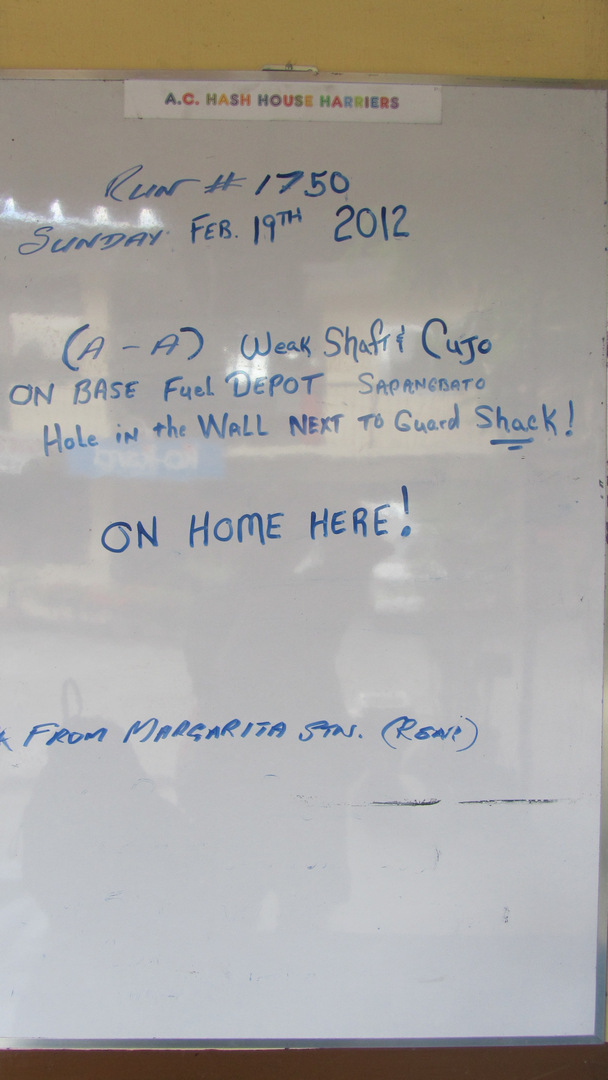 A.C. HASH HOUSE HARRIERS
RUN # 1750
SUNDAY FEB. 19TH 2012
(A-A) Weak Shaft & Cujo
ON BASE Fuel DEPOT SAPANGBATO
Hole in the WALL NEXT TO Guard Shack!
ON HOME HERE!
FROM MARGARITA STN. (RENI)